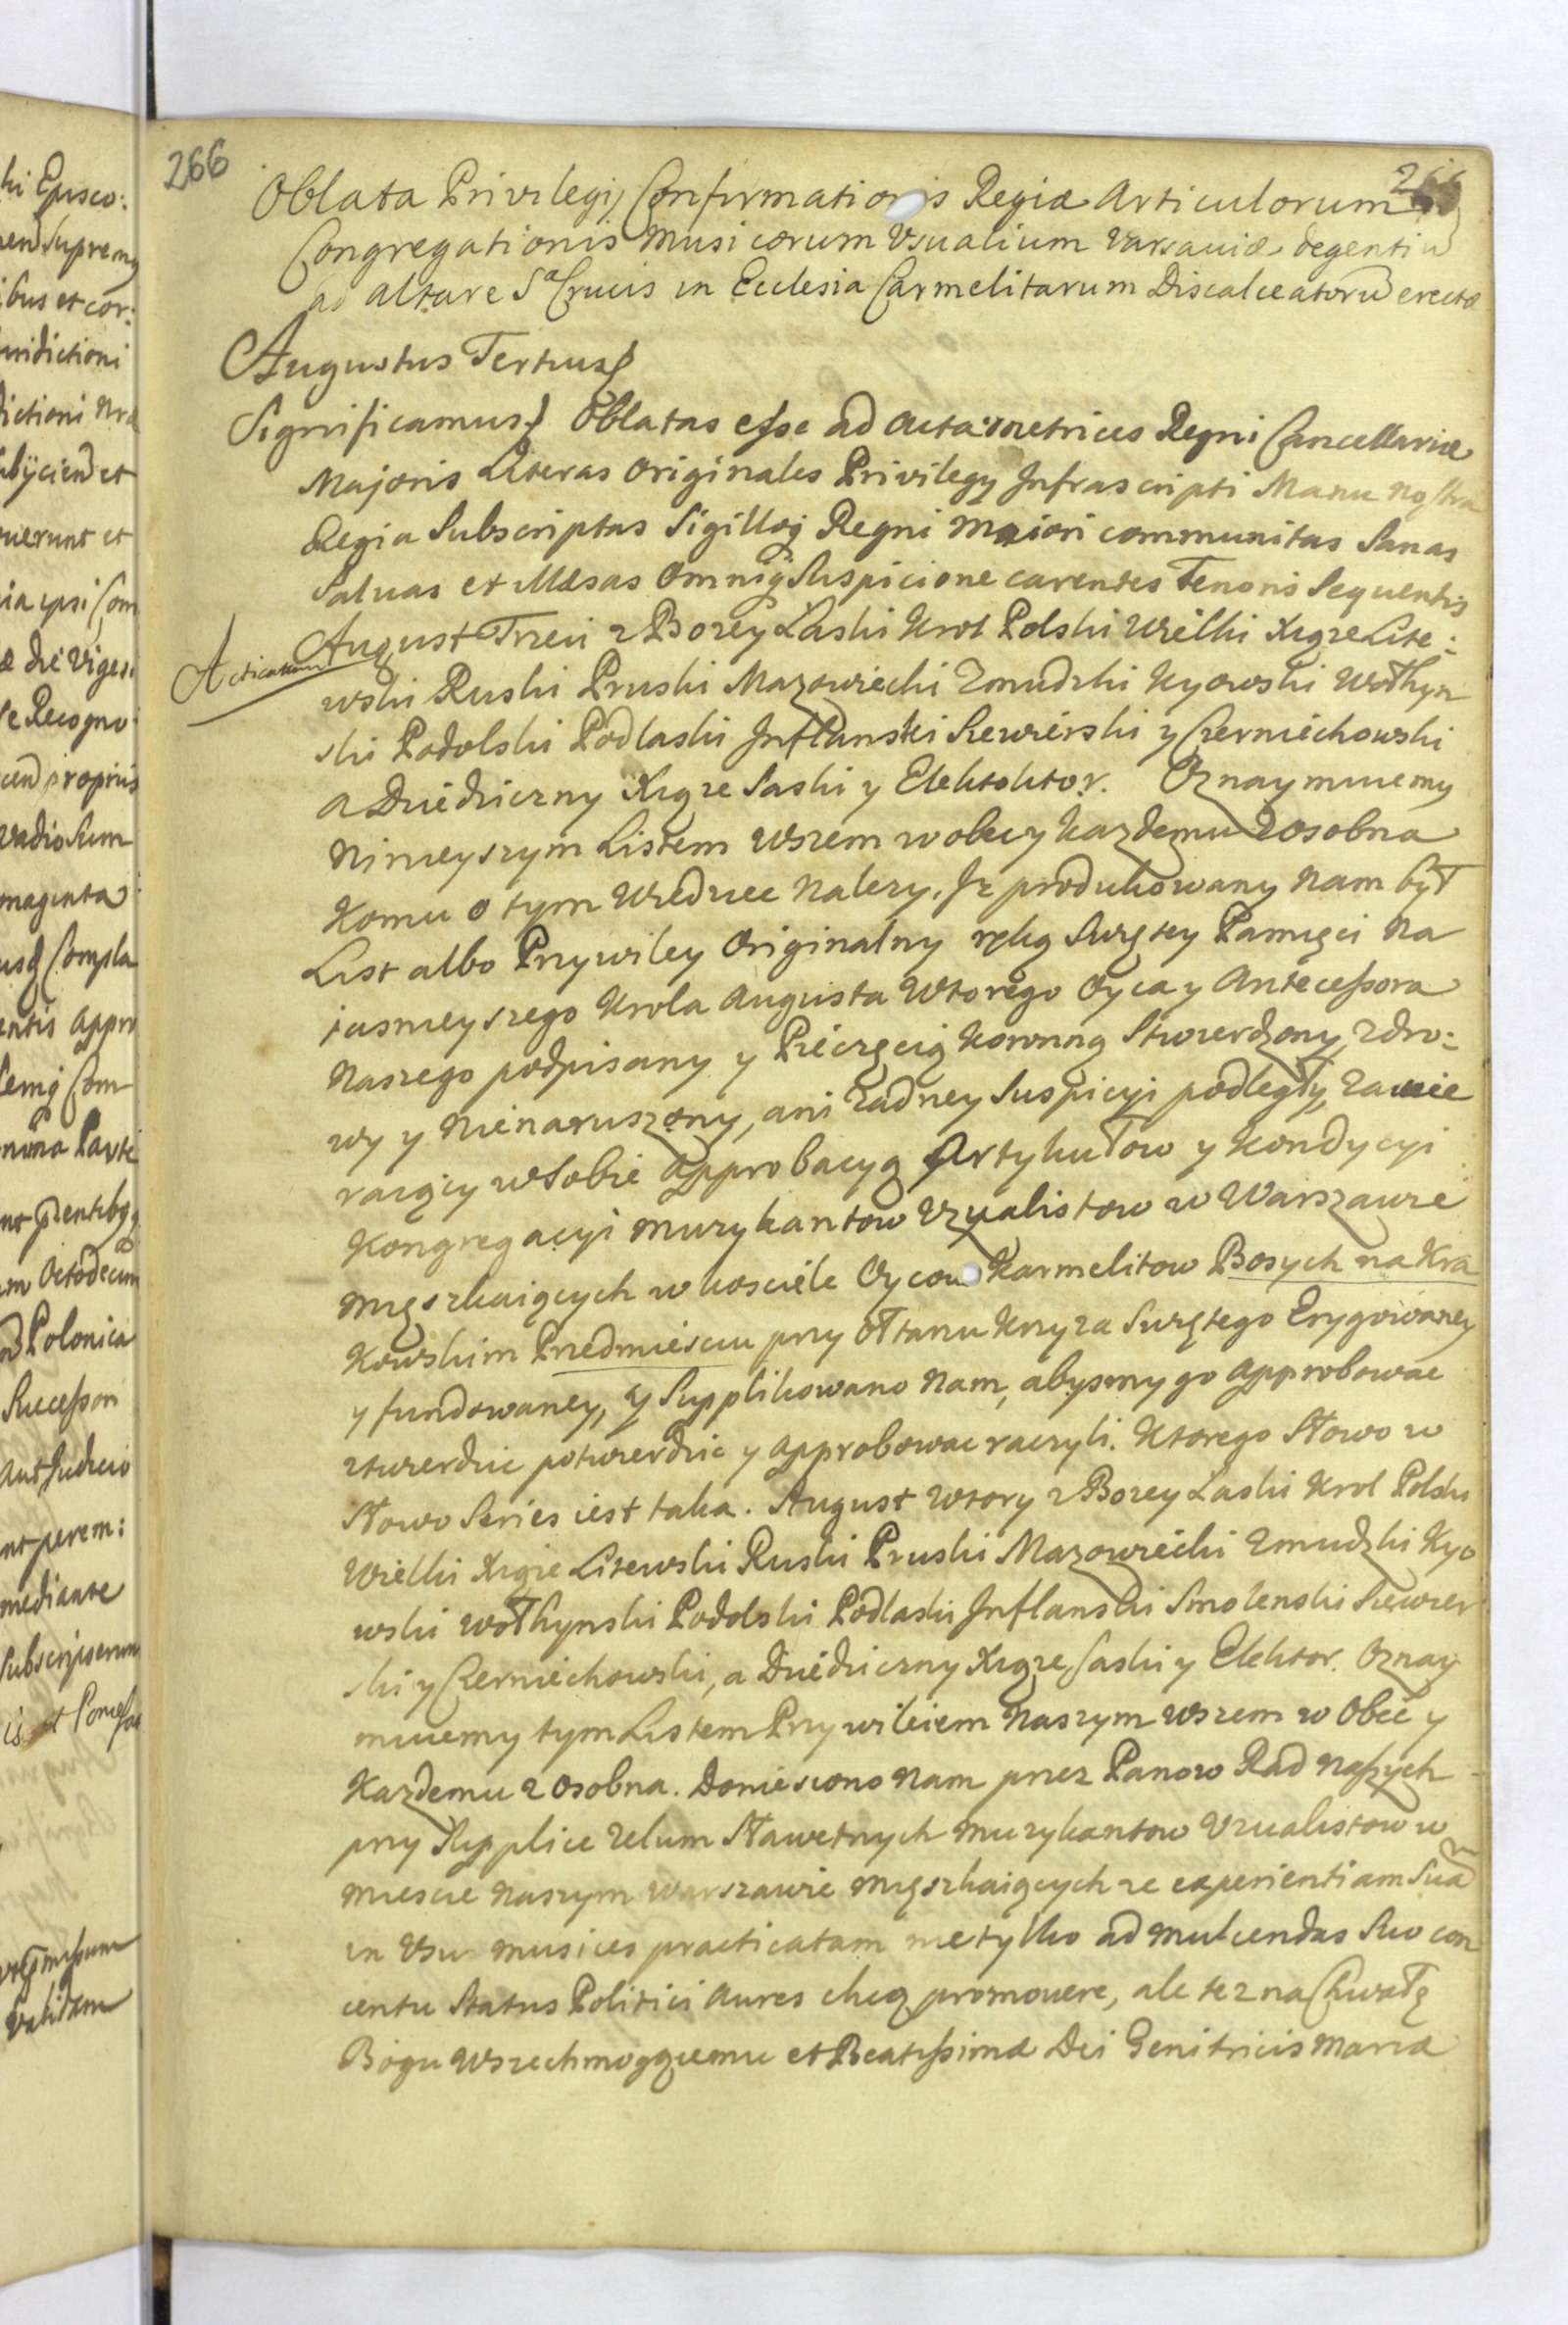 266
Oblata Privilegij Confirmationis Regiæ Articulorum
Congregationis Musicorum Vsualium Varsaviæ degentiu
ad altare S. Crucis in Ecclesia Carmelitarum Discalceatorū erectæ
Augustus Tertius
Significamus Oblatas esse ad Acta metrices Regni Cancellariæ
Majoris Literas Originales Privilegy Infrascripti Manu nostra
Regia Subscriptas Sigilloq Regni Maiori communitas Sanas
Salvas et Illæsas Omniq Suspicione carentes Tenoris Sequentis
Acticatum
August Trzeci z Bozey Laski Krol Polski Wielki Xiąze Lite:
wski Ruski Pruski Mazowiecki Zmudzki Kyowski Wołhyn
ski Podolski Podlaski Inflanski Siewierski y Czerniechowski
a Dziedziczny Xiąze Saski y Elektoktor. Oznaymuiemy
Ninieyszym Listem wszem wobec y kazdemu zosobna
Komu o tym Wiedziec Nalezy. Iz produkowany Nam był
List albo Przywiley Originalny ręką Swiętey Pamięci Na
iasnieyszego Krola Augusta Wtorego Oyca y Antecessora
Naszego podpisany y Pieczęcią Koronną Stwierdzony, zdro:
wy y Nienaruszony, ani zadney Suspicyi podległy, zawie
raiący w Sobie Approbacyą Artykułow y Kondycyi
Kongregacyi Muzykantow Vzualistow w Warszawie
Mięszkaiących w kosciele Oycow Karmelitow Bosych na Kra
kowskim Przedmiesciu przy Ołtarzu Krzyza Swiętego Erygowaney
y fundowaney, y Supplikowano Nam, abysmy go Approbowac
ztwierdzic potwierdzic y Approbowac raczyli. Ktorego Słowo w
Słowo Series iest taka. August Wtory z Bozey Laski Krol Polski
Wielki Xiąze Litewski Ruski Pruski Mazowiecki Zmudzki Kyo
wski Wołhynski Podolski Podlaski Inflanski Smolenski Siewier
ski y Czerniechowski, a Dziedziczny Xiąze Saski y Elektor. Oznay
muiemy tym Listem Przywileiem Naszym wszem w Obec y
Kazdemu z osobna. Doniesiono Nam przez Panow Rad Naszych
przy Supplice zelum Sławetnych Muzykantow Vzualistow w
Miescie Naszym Warszawie Mięszkaiących ze experientiam Suā
in Vsu Musices practicatam nietylko ad Mulcendas Suo con
centu Status Politici Aures chcą promovere, ale tez na Chwałę
Bogu Wszechmogącemu et Beatissimæ Dei Genitricis Mariæ